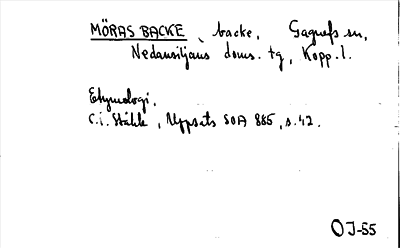 MÖRAS BACKE, backe, Gagnefs sn,
Nedansiljans doms. tg, Kopp. l.
Etymologi.
C.I. Ståhle, Uppsats SOA 885, s. 42.
OJ-85